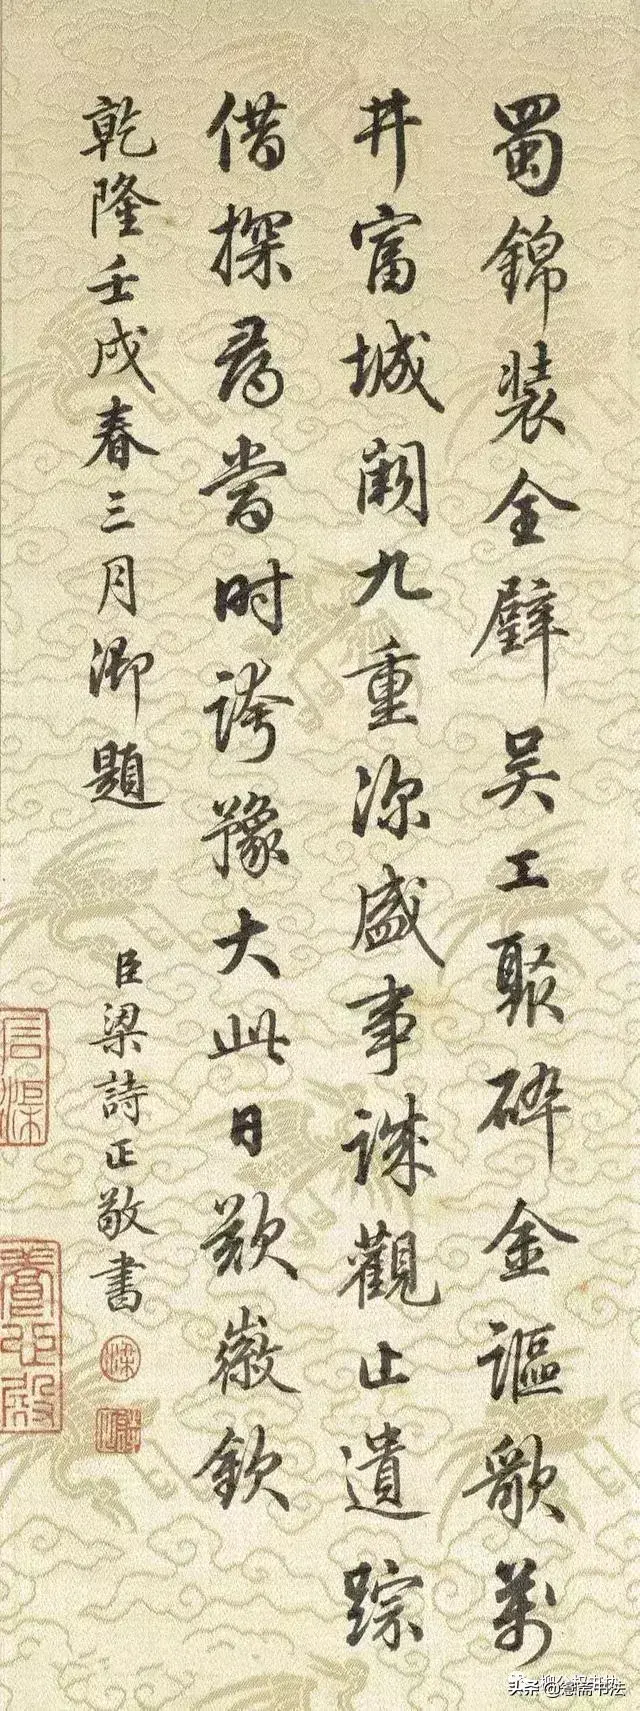 蜀錦装全璧吴工聚碎金謳歌萬
井富城闕九重深盛事誠觀止遺踪
借探尋當時誇豫大此日歎徽欽
乾隆壬戌春三月御題
臣梁詩正敬書
養心殿
头条
书法